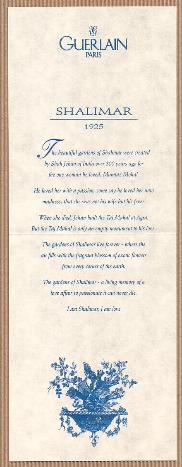 GUERLAIN
PARIS
SHALIMAR
1925
The beautiful gardens of Shalimar were created
by Shah Jehan of India over 300 years ago for
the one woman he loved, Mumtaz Mahal.
He loved her with a passion, some say he loved her unto
madness, that she was not his wife but his fever.
When she died, Jehan built the Taj Mahal at Agra.
But the Taj Mahal is only an empty monument to his love.
The gardens of Shalimar live forever - where the
air fills with the fragrant blossom of exotic flowers
from every corner of the earth.
The gardens of Shalimar - a living memory of a
love affair so passionate it can never die.
I am Shalimar, I am love